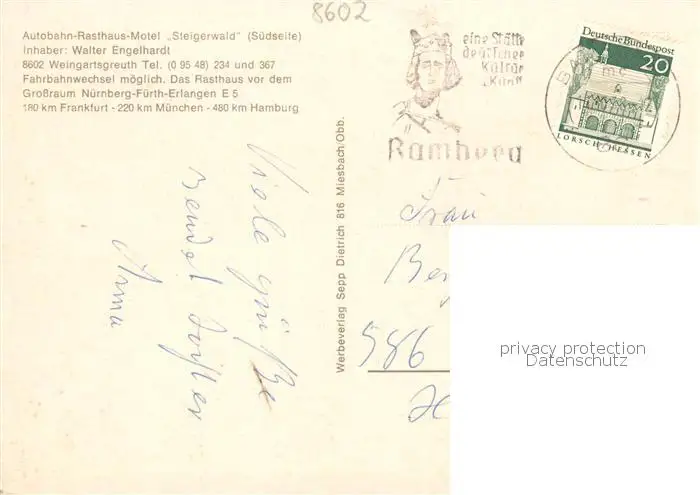 8602
Autobahn-Rasthaus-Motel „Steigerwald" (Südseite)
Inhaber: Walter Engelhardt
8602 Weingartsgreuth Tel. (0 95 48) 234 und 367
Fahrbahnwechsel möglich. Das Rasthaus vor dem
Großraum Nürnberg-Fürth-Erlangen E 5
180 km Frankfurt - 220 km München - 480 km Hamburg
eine Stätte
deutscher
Kultur
u. Kunst
Bamberg
Deutsche Bundespost
20
LORSCH/HESSEN
Werbeverlag Sepp Dietrich 816 Miesbach/Obb.
Viele Grüße
sendet
Anna
Frau
586
privacy protection
Datenschutz